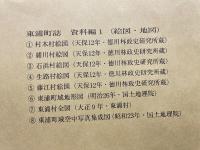 東浦町誌 資料編1(絵図・地図)
① 村木村絵図(天保12年・徳川林政史研究所蔵)
② 緒川村絵図(天保12年・徳川林政史研究所蔵)
③ 石浜村絵図(天保12年・徳川林政史研究所蔵)
④ 生路村絵図(天保12年・徳川林政史研究所蔵)
⑤ 藤江村絵図(天保12年・徳川林政史研究所蔵)
⑥ 東浦町域地形図(明治26年・国土地理院)
⑦ 東浦村全図(大正9年・東浦村)
⑧ 東浦町域空中写真集成図(昭和23年・国土地理院)